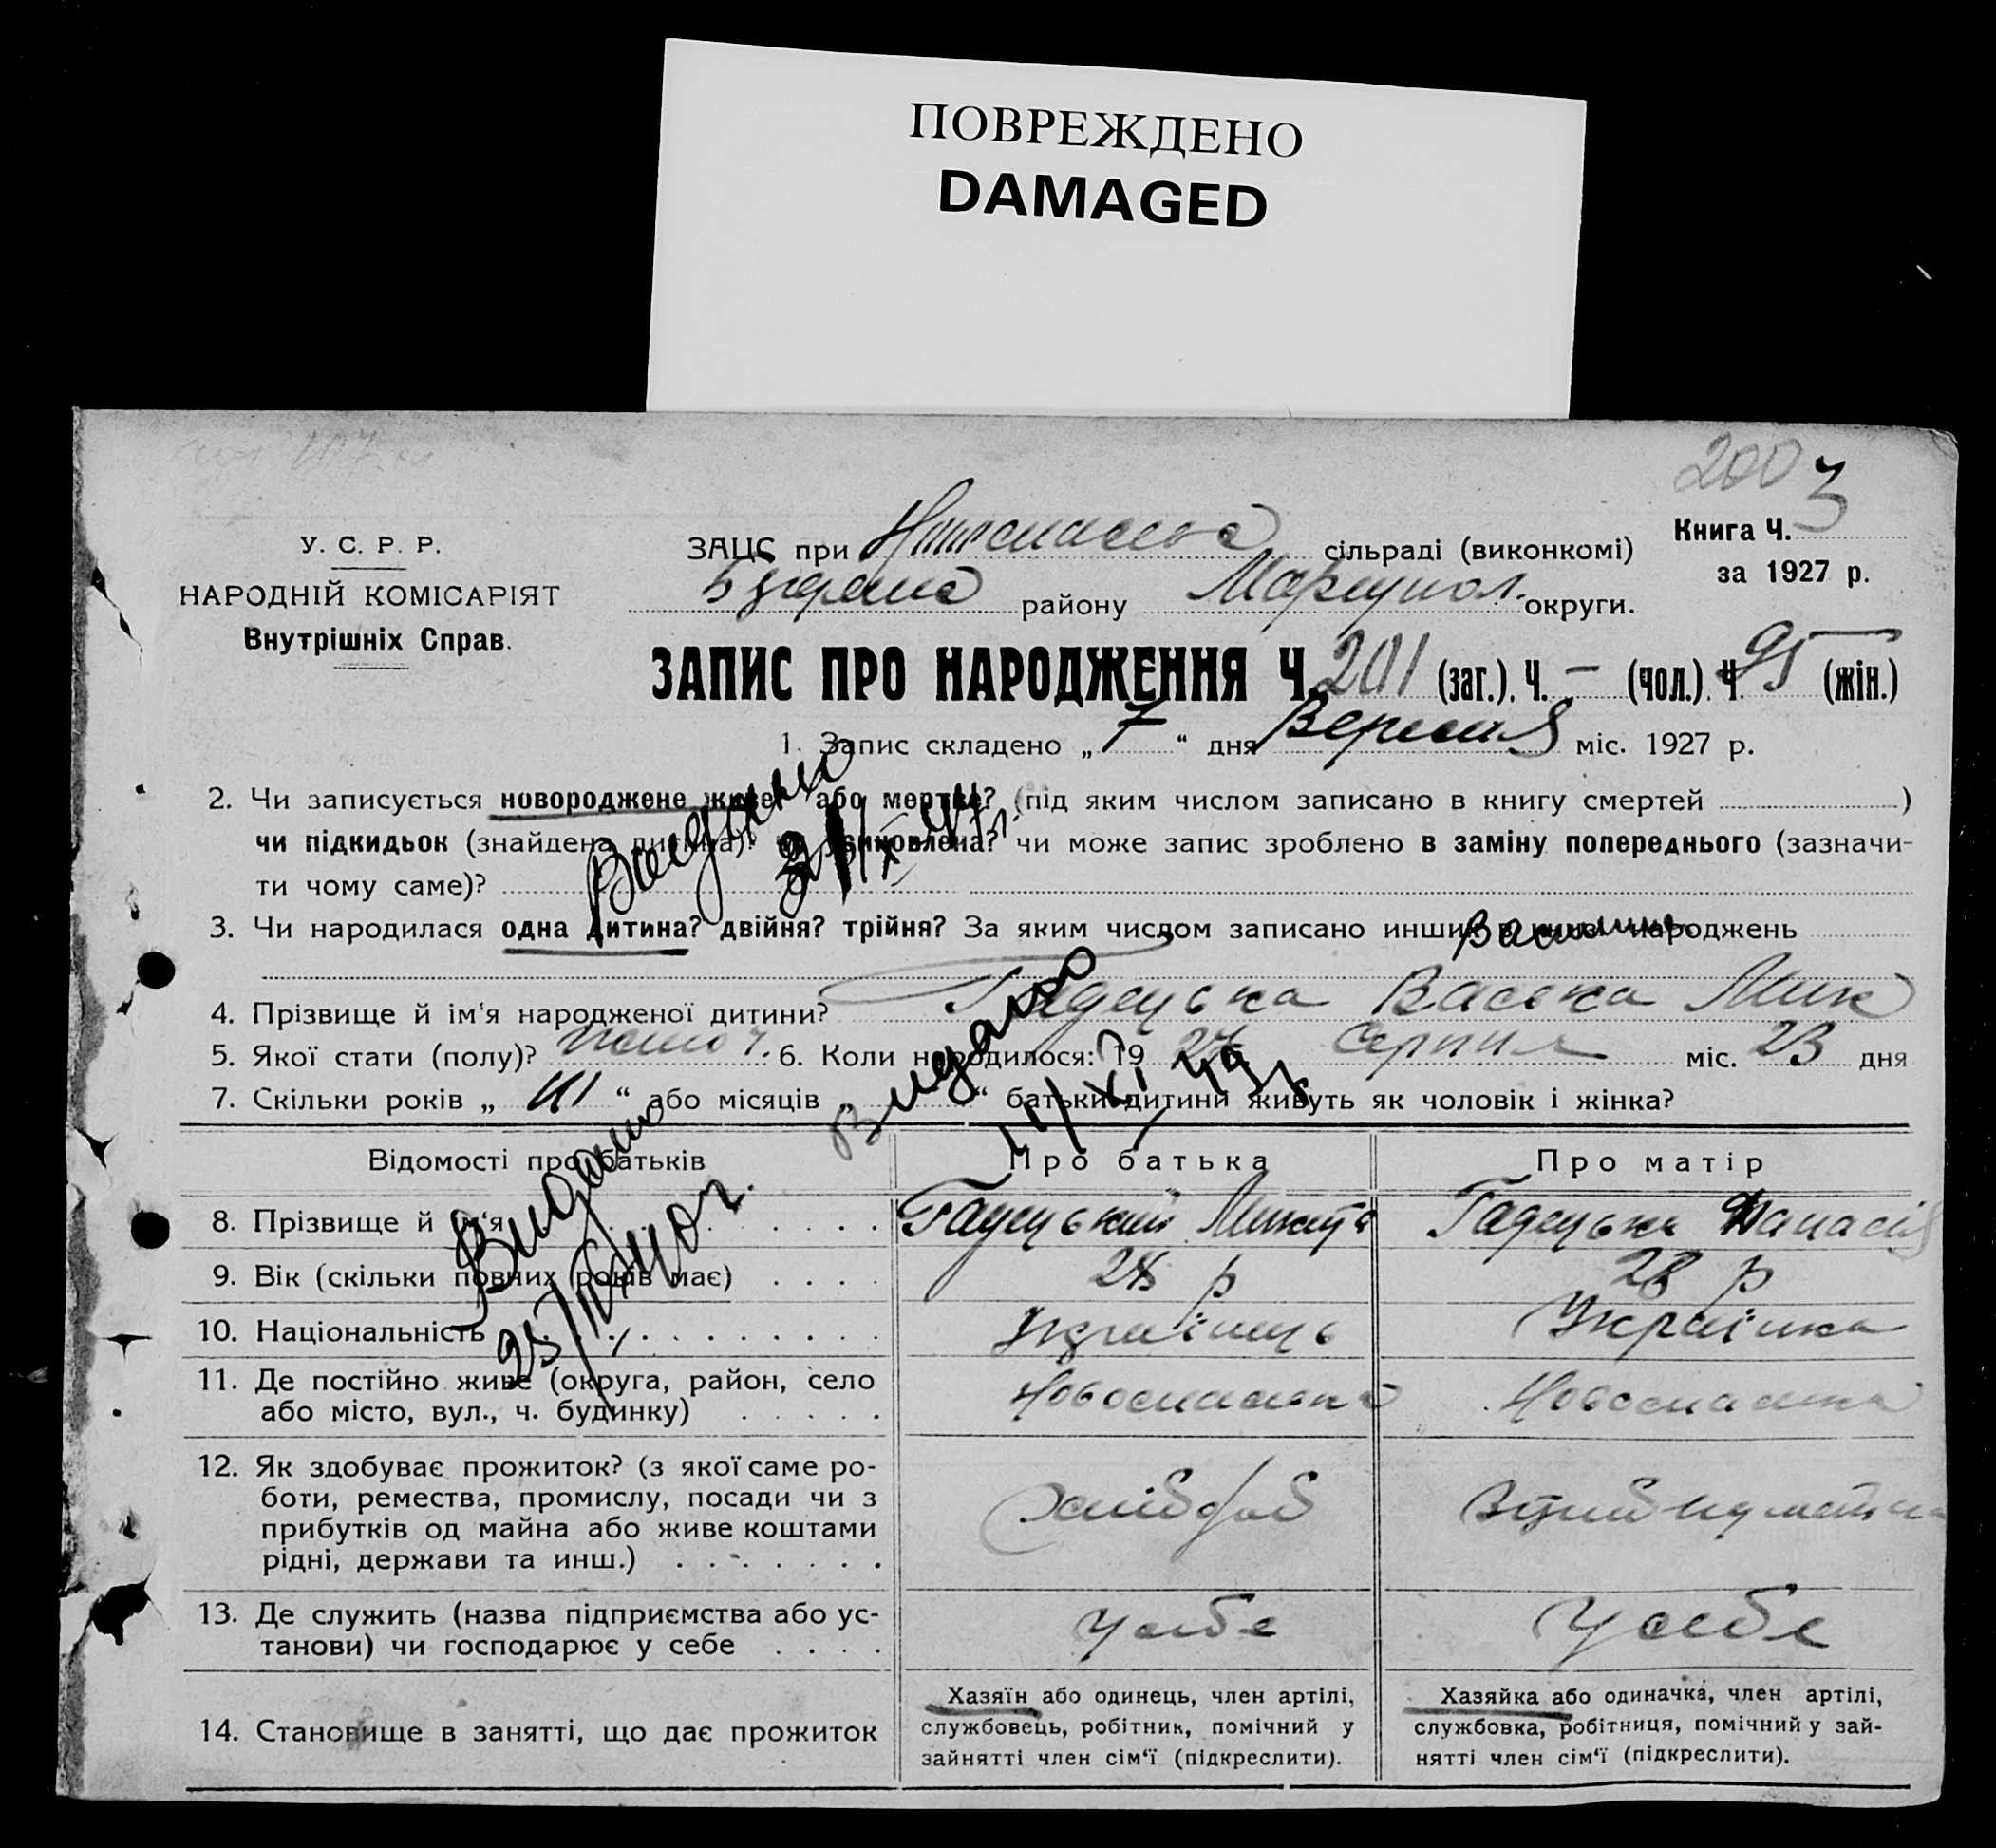 ПОВРЕЖДЕНО
DAMAGED
200 3
У. С. Р. Р.
НАРОДНІЙ КОМІСАРІЯТ
Внутрішніх Справ.
ЗАЦС при сільраді (виконкомі)
району Маріупол. округи.
Книга Ч. 3
за 1927 р.
ЗАПИС ПРО НАРОДЖЕННЯ Ч. 201 (заг.). Ч. – (чол.). Ч. 95 (жін.)
1. Запис складено „ 7 “ дня Вересня міс. 1927 р.
2. Чи записується новороджене живе? або мертве? (під яким числом записано в книгу смертей )
чи підкидьок (знайдена дитина)? чи усиновлена? чи може запис зроблено в заміну попереднього (зазначи-
ти чому саме)?
Видано
3. Чи народилася одна дитина? двійня? трійня? За яким числом записано инших в книзі народжень
4. Прізвище й ім'я народженої дитини? Гадецька Васька Мик
5. Якої стати (полу)? 6. Коли народилося: 1927 Серпня міс. 23 дня
7. Скільки років „ “ або місяців „ “ батьки дитини живуть як чоловік і жінка?
Видано
Видано
Відомості про батьків Про батька Про матір
8. Прізвище й ім'я Гадецький Микита Гадецька
9. Вік (скільки повних років має) р 28 р
10. Національність Українець Українка
11. Де постійно живе (округа, район, село
або місто, вул., ч. будинку) Новоспаська Новоспаська
12. Як здобуває прожиток? (з якої саме ро-
боти, ремества, промислу, посади чи з
прибутків од майна або живе коштами
рідні, держави та инш.) Хлібороб
13. Де служить (назва підприємства або ус-
танови) чи господарює у себе у себе у себе
14. Становище в занятті, що дає прожиток
Хазяїн або одинець, член артілі,
службовець, робітник, помічний у
зайнятті член сім'ї (підкреслити).
Хазяйка або одиначка, член артілі,
службовка, робітниця, помічний у зай-
нятті член сім'ї (підкреслити).